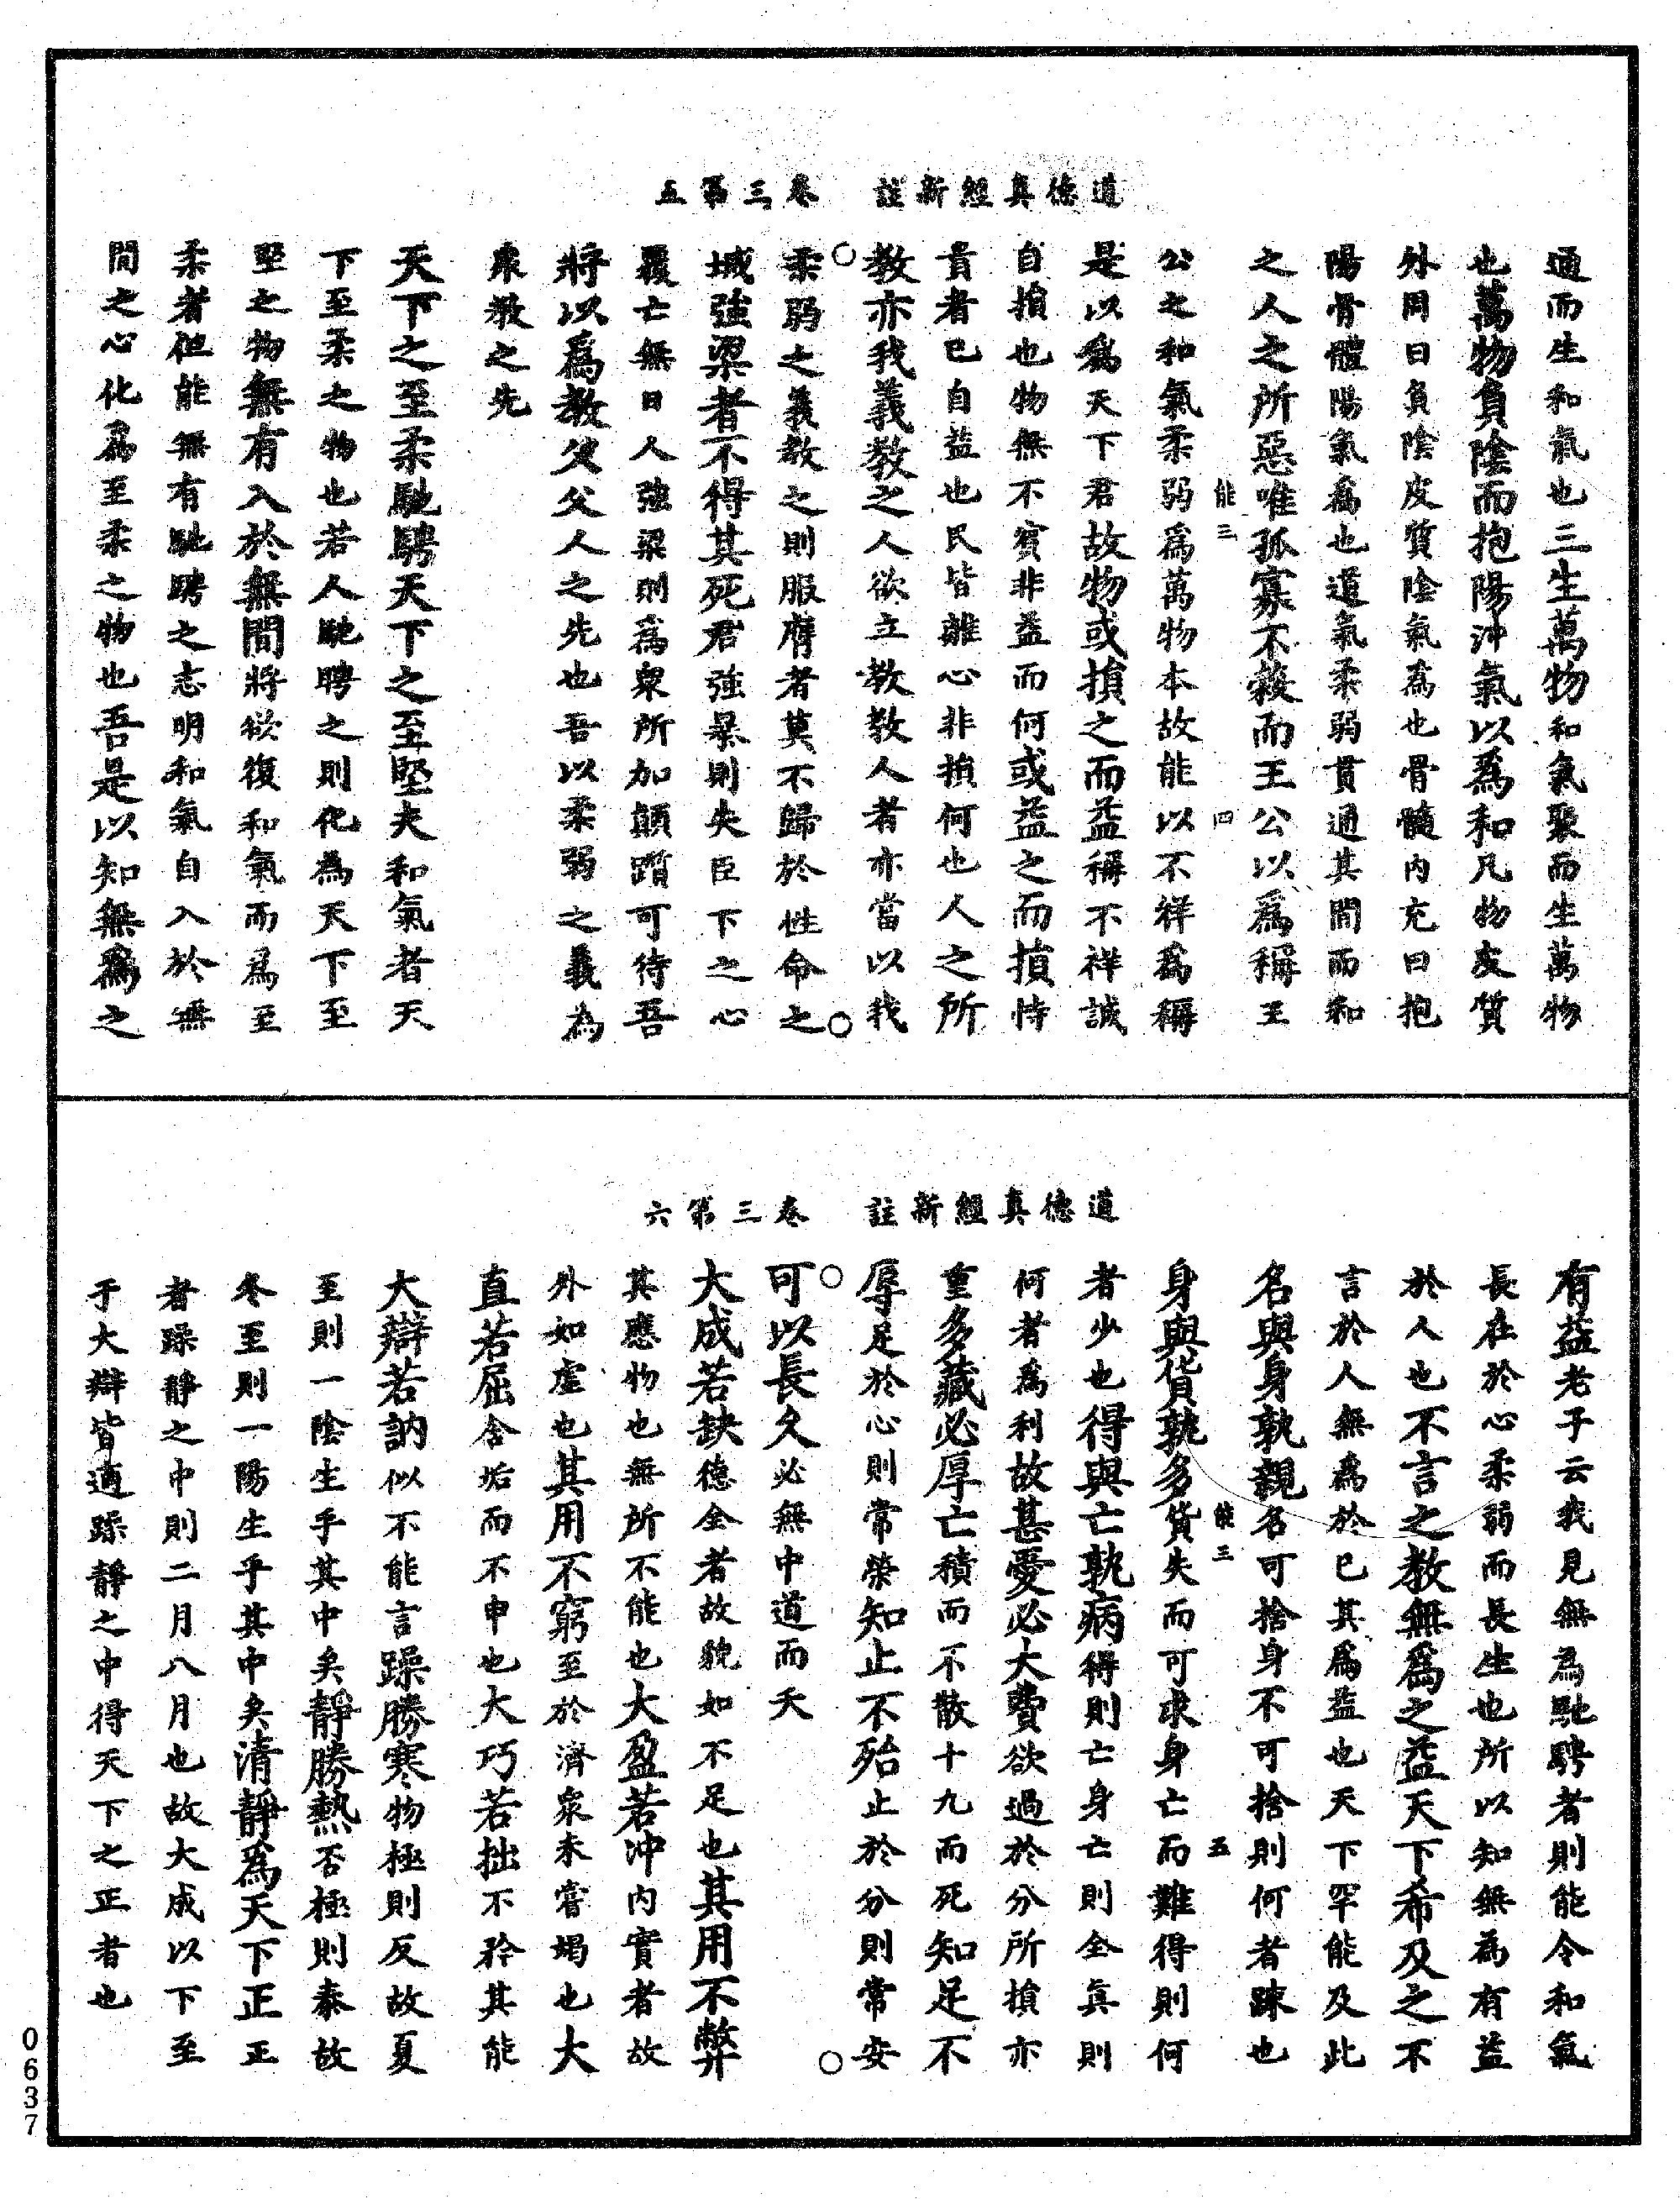 道德真經新註　卷三第五
通而生和氣也三生萬物和氣聚而生萬物
也萬物負陰而抱陽沖氣以爲和凡物皮質
外周曰負陰皮質陰氣爲也骨髓內充曰抱
陽骨體陽氣爲也道氣柔弱貫通其間而和
之人之所惡唯孤寡不穀而王公以爲稱王
能三　四
公之和氣柔弱爲萬物本故能以不祥爲稱
是以爲天下君故物或損之而益稱不祥誠
自損也物無不賓非益而何或益之而損恃
貴者已自益也民皆離心非損何也人之所
教亦我義教之人欲立教教人者亦當以我
柔弱之義教之則服膺者莫不歸於性命之
城強梁者不得其死君強暴則失臣下之心
覆亡無日人強梁則爲衆所加顛躓可待吾
將以爲教父父人之先也吾以柔弱之義為
衆教之先
天下之至柔馳騁天下之至堅夫和氣者天
下至柔之物也若人馳騁之則化為天下至
堅之物無有入於無間將欲復和氣而爲至
柔者但能無有馳騁之志明和氣自入於無
間之心化爲至柔之物也吾是以知無爲之
道德真經新註　卷三第六
有益老子云我見無為馳騁者則能令和氣
長在於心柔弱而長生也所以知無為有益
於人也不言之教無爲之益天下希及之不
言於人無爲於已其爲益也天下罕能及此
名與身孰親名可捨身不可捨則何者踈也
能三　五
身與貨孰多貨失而可求身亡而難得則何
者少也得與亡孰病得則亡身亡則全真則
何者爲利故甚愛必大費欲過於分所損亦
重多藏必厚亡積而不散十九而死知足不
辱足於心則常榮知止不殆止於分則常安
可以長久必無中道而夭
大成若缺德全者故貌如不足也其用不弊
其應物也無所不能也大盈若沖內實者故
外如虛也其用不窮至於濟衆未嘗竭也大
直若屈含垢而不申也大巧若拙不矜其能
大辯若訥似不能言躁勝寒物極則反故夏
至則一陰生乎其中矣靜勝熱否極則泰故
冬至則一陽生乎其中矣清靜爲天下正正
者躁靜之中則二月八月也故大成以下至
于大辯皆適躁靜之中得天下之正者也
0637